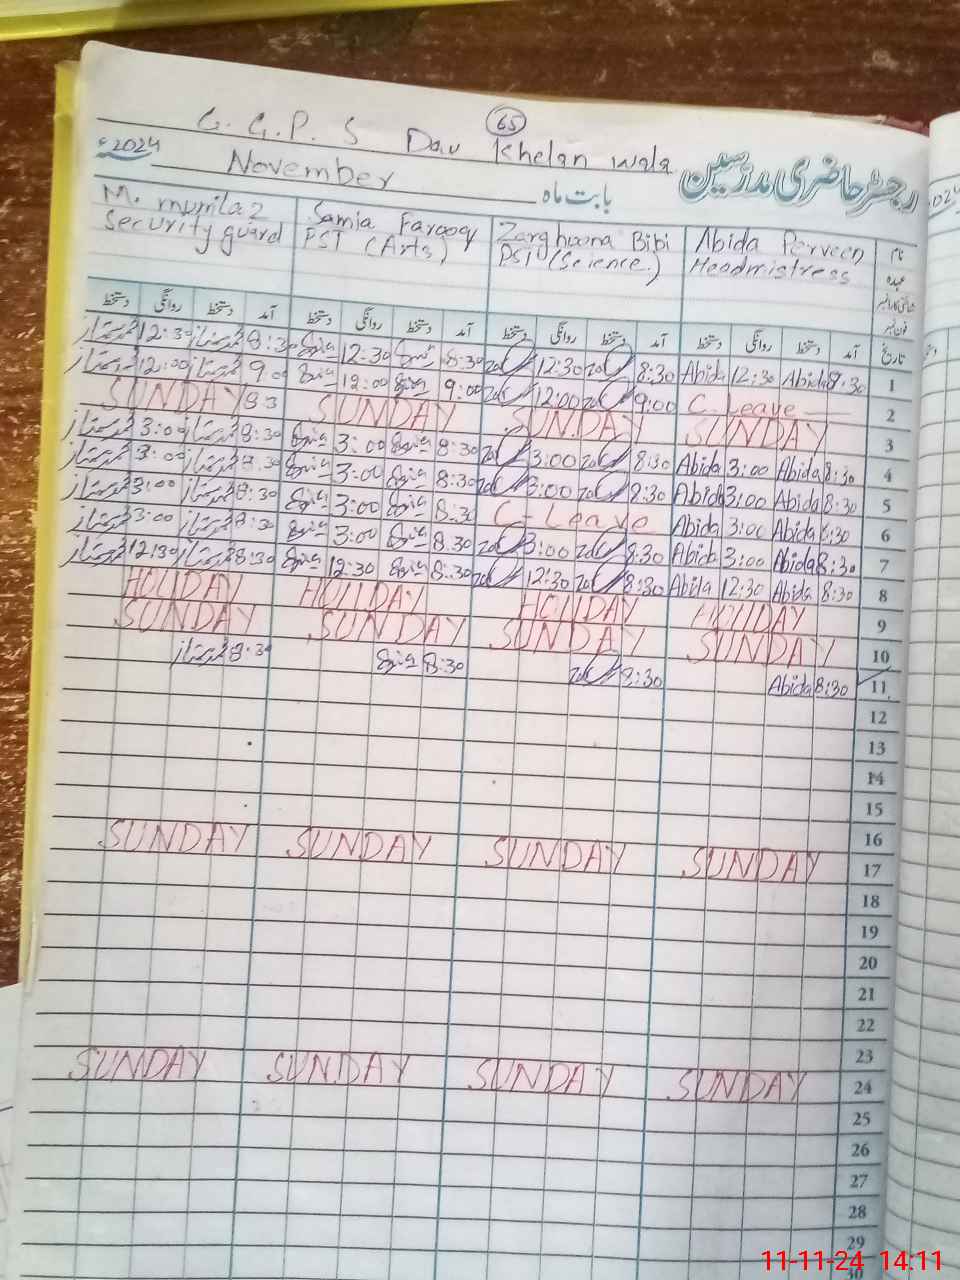 65
G. G. P. S Dau Khelan wala
رجسٹر حاضری مدرسین
بابت ماہ November 2024ء
M. mumtaz Samia Farooq Zarghoona Bibi Abida Perveen نام
Security guard PST (Arts) PST (Science.) Headmistress عہدہ
شناختی کارڈ نمبر
فون نمبر
دستخط روانگی دستخط آمد دستخط روانگی دستخط آمد دستخط روانگی دستخط آمد دستخط روانگی دستخط آمد تاریخ
ممتاز 12:30 ممتاز 8:30 12:30 8:30 12:30 8:30 Abida 12:30 Abida 8:30 1
ممتاز 12:00 ممتاز 9:00 12:00 9:00 12:00 9:00 C. Leave 2
SUNDAY SUNDAY SUNDAY SUNDAY 3
ممتاز 3:00 ممتاز 8:30 3:00 8:30 3:00 8:30 Abida 3:00 Abida 8:30 4
ممتاز 3:00 ممتاز 8:30 3:00 8:30 3:00 8:30 Abida 3:00 Abida 8:30 5
ممتاز 3:00 ممتاز 8:30 3:00 8:30 C-Leave Abida 3:00 Abida 8:30 6
ممتاز 3:00 ممتاز 8:30 3:00 8:30 3:00 8:30 Abida 3:00 Abida 8:30 7
ممتاز 12:30 ممتاز 8:30 12:30 8:30 12:30 8:30 Abida 12:30 Abida 8:30 8
HOLIDAY HOLIDAY HOLIDAY HOLIDAY 9
SUNDAY SUNDAY SUNDAY SUNDAY 10
ممتاز 8:30 8:30 8:30 Abida 8:30 11
12
13
14
15
16
SUNDAY SUNDAY SUNDAY SUNDAY 17
18
19
20
21
22
23
SUNDAY SUNDAY SUNDAY SUNDAY 24
25
26
27
28
29
30
11-11-24 14:11